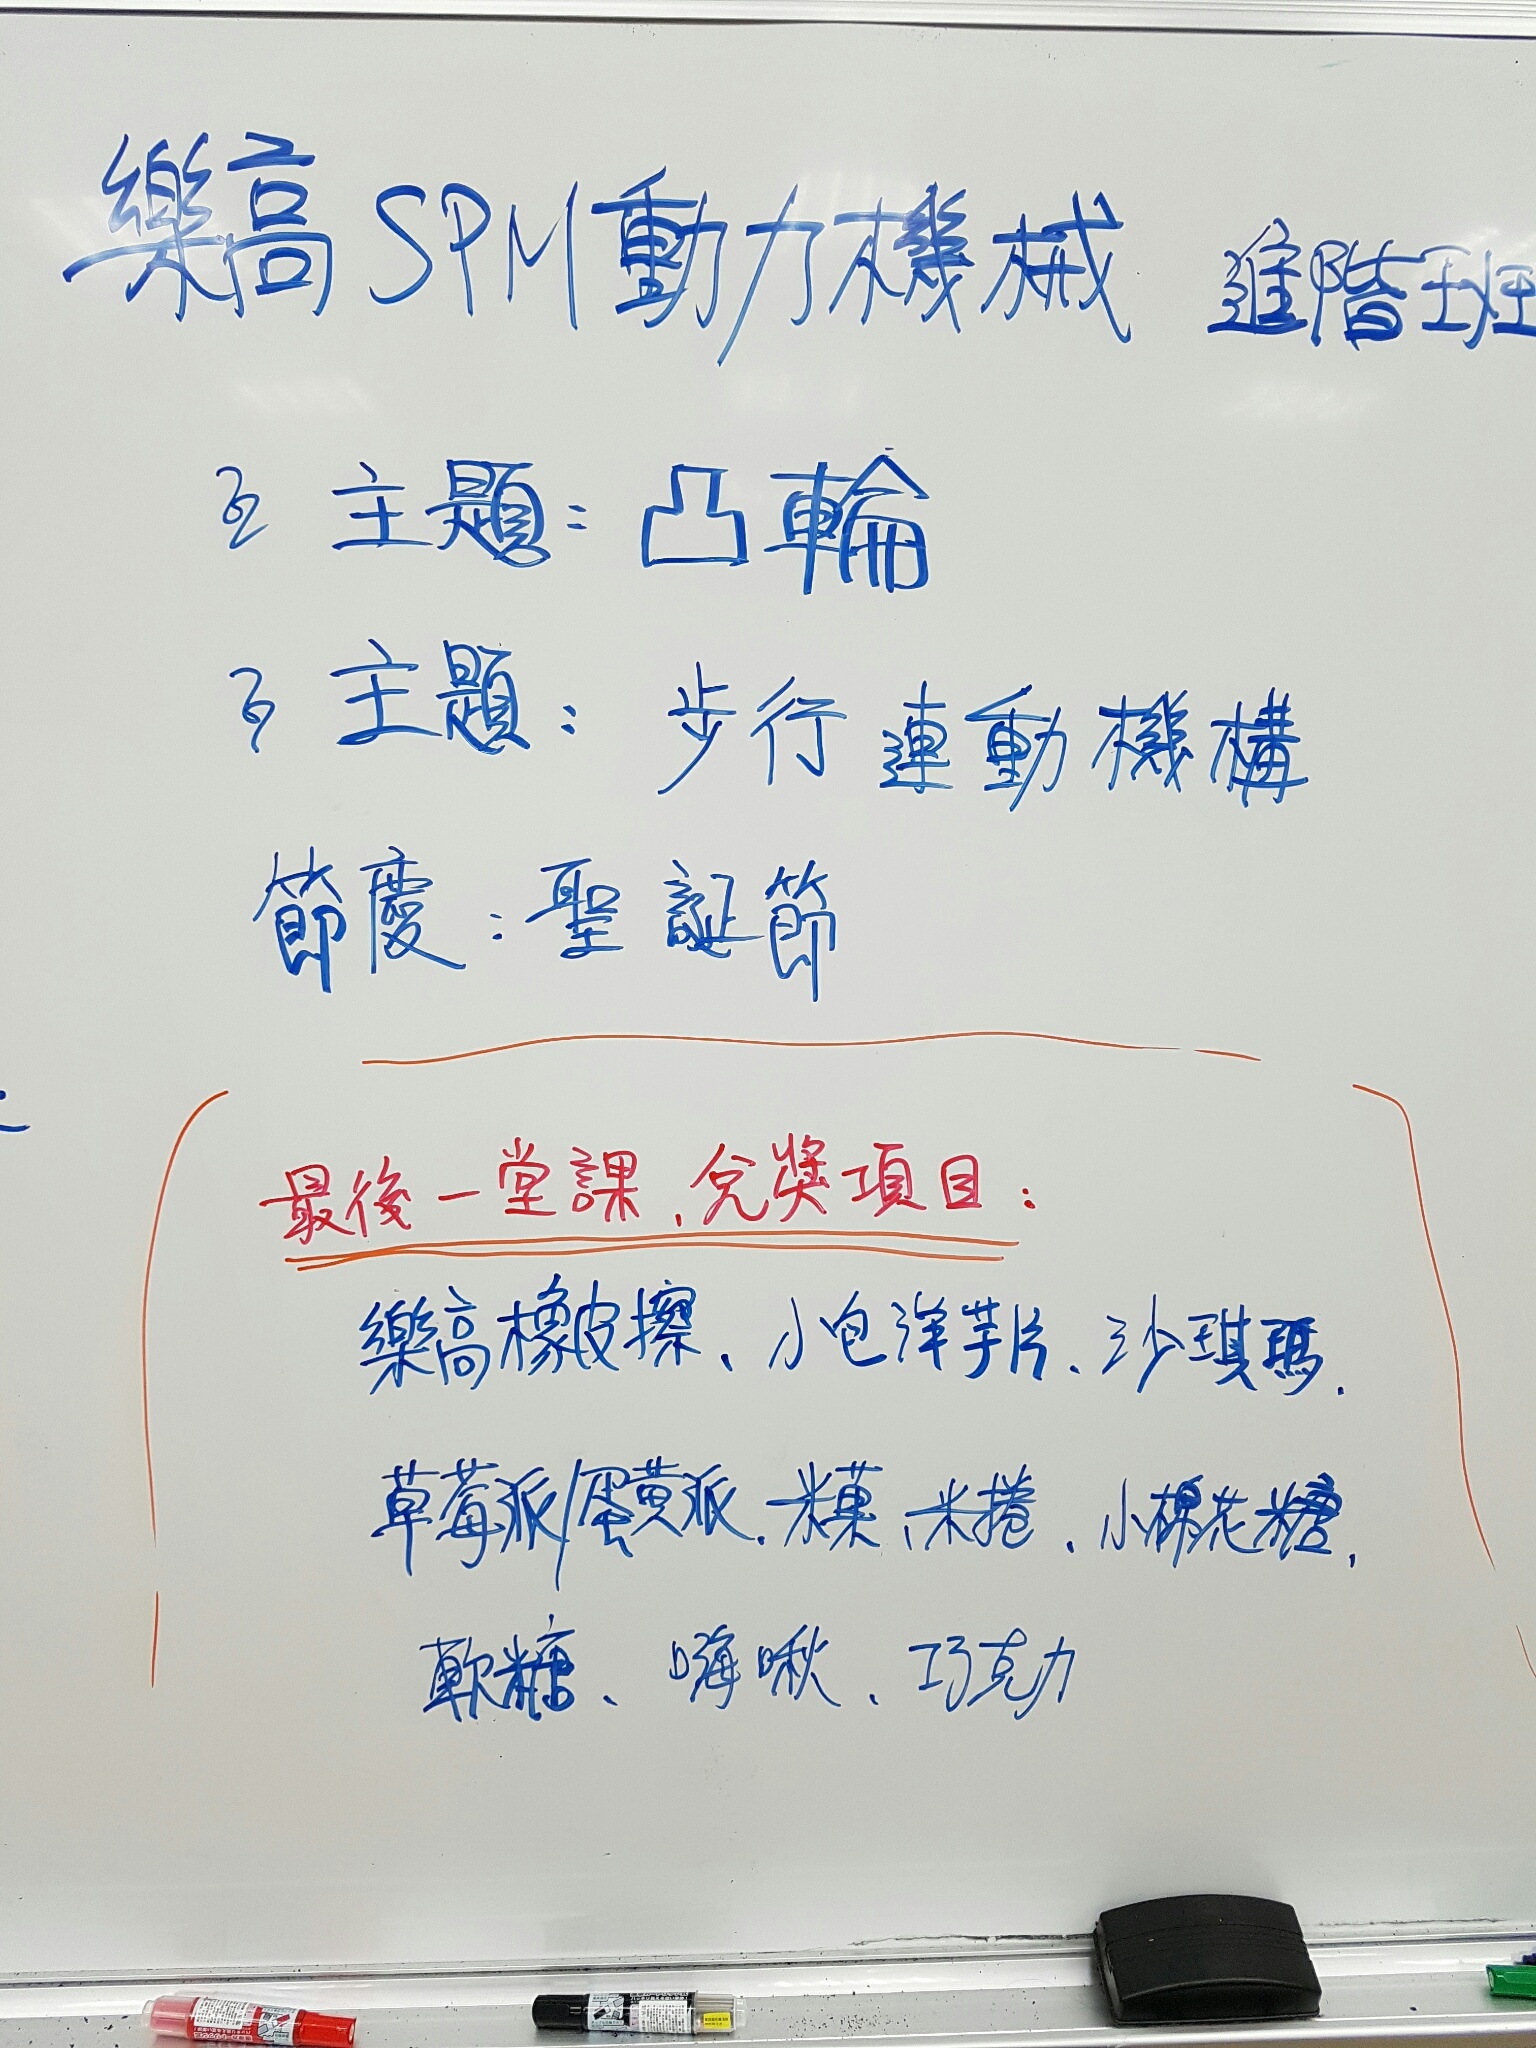 樂高 SPM動力機械 進階班
主題：凸輪
主題：步行連動機構
節慶：聖誕節
最後一堂課、兌獎項目：
樂高橡皮擦、小包洋芋片、沙琪瑪、
草莓派/蛋黃派、米菓、米捲、小棉花糖、
軟糖、嗨啾、巧克力